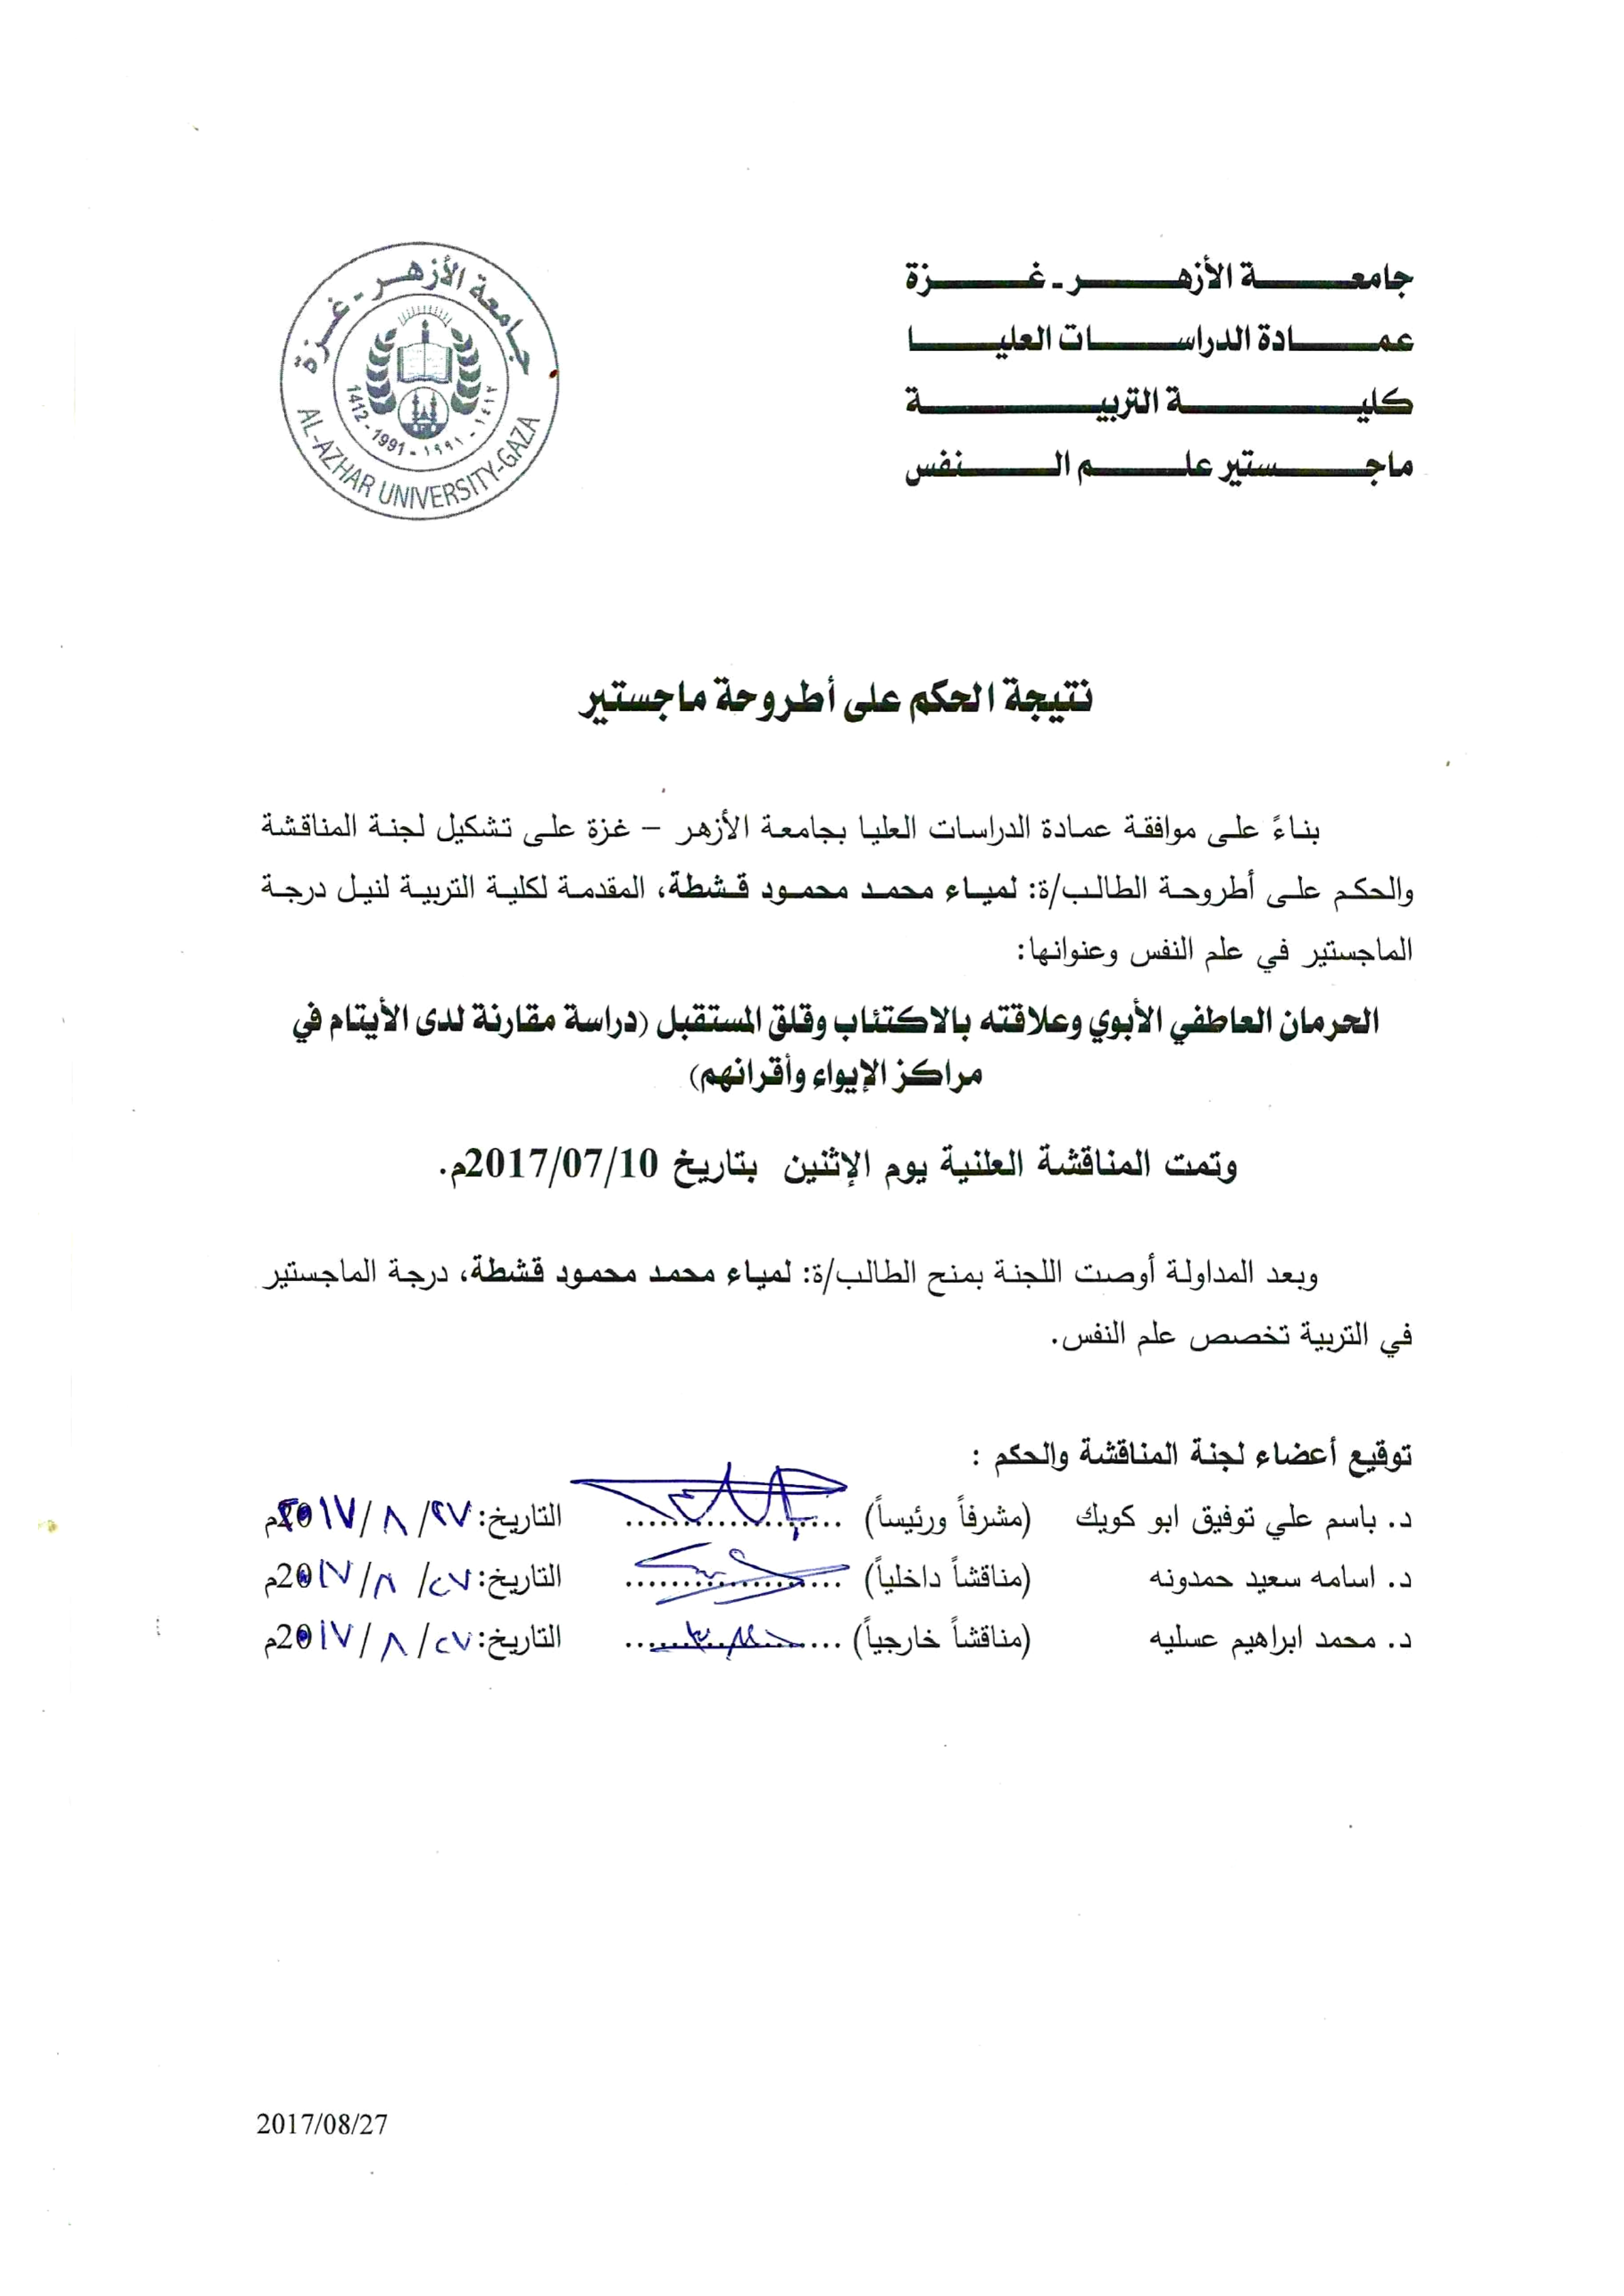 جامعة الأزهر - غزة
عمادة الدراسات العليا
كلية التربية
ماجستير علم النفس
جامعة الأزهر - غزة
1412 - 1991 - ١٩٩١ - ١٤١٢
AL-AZHAR UNIVERSITY-GAZA
نتيجة الحكم على أطروحة ماجستير
بناءً على موافقة عمادة الدراسات العليا بجامعة الأزهر – غزة على تشكيل لجنة المناقشة
والحكم على أطروحة الطالب/ة: لمياء محمد محمود قشطة، المقدمة لكلية التربية لنيل درجة
الماجستير في علم النفس وعنوانها:
الحرمان العاطفي الأبوي وعلاقته بالاكتئاب وقلق المستقبل (دراسة مقارنة لدى الأيتام في
مراكز الإيواء وأقرانهم)
وتمت المناقشة العلنية يوم الإثنين بتاريخ 2017/07/10م.
وبعد المداولة أوصت اللجنة بمنح الطالب/ة: لمياء محمد محمود قشطة، درجة الماجستير
في التربية تخصص علم النفس.
توقيع أعضاء لجنة المناقشة والحكم :
د. باسم علي توفيق ابو كويك (مشرفاً ورئيساً) .................... التاريخ: ٢٧/ ٨ /20١٧م
د. اسامه سعيد حمدونه (مناقشاً داخلياً) .................... التاريخ: ٢٧/ ٨ /20١٧م
د. محمد ابراهيم عسليه (مناقشاً خارجياً) .................... التاريخ: ٢٧/ ٨ /20١٧م
2017/08/27